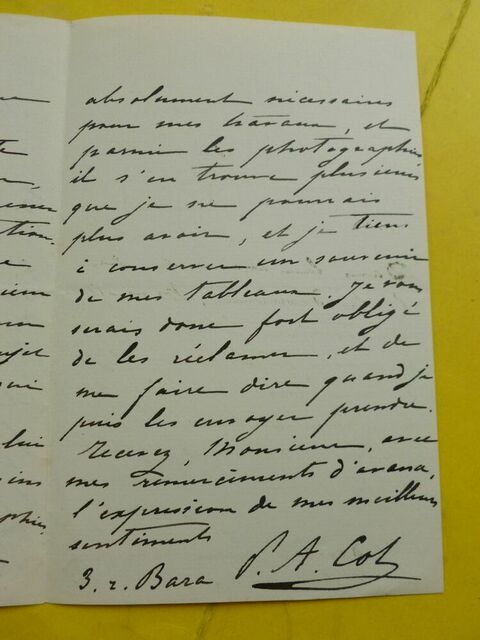 absolument nécessaires
pour mes travaux, et
parmi les photographies
il s'en trouve plusieurs
que je ne pourrais
plus avoir, et je tiens
à conserver un souvenir
de mes tableaux. Je vous
serais donc fort obligé
de les réclamer, et de
me faire dire quand je
puis les envoyer prendre.
Recevez, Monsieur, avec
mes remerciments d'avance,
l'expression de mes meilleurs
sentiments
P. A. Cot
3. r. Bara